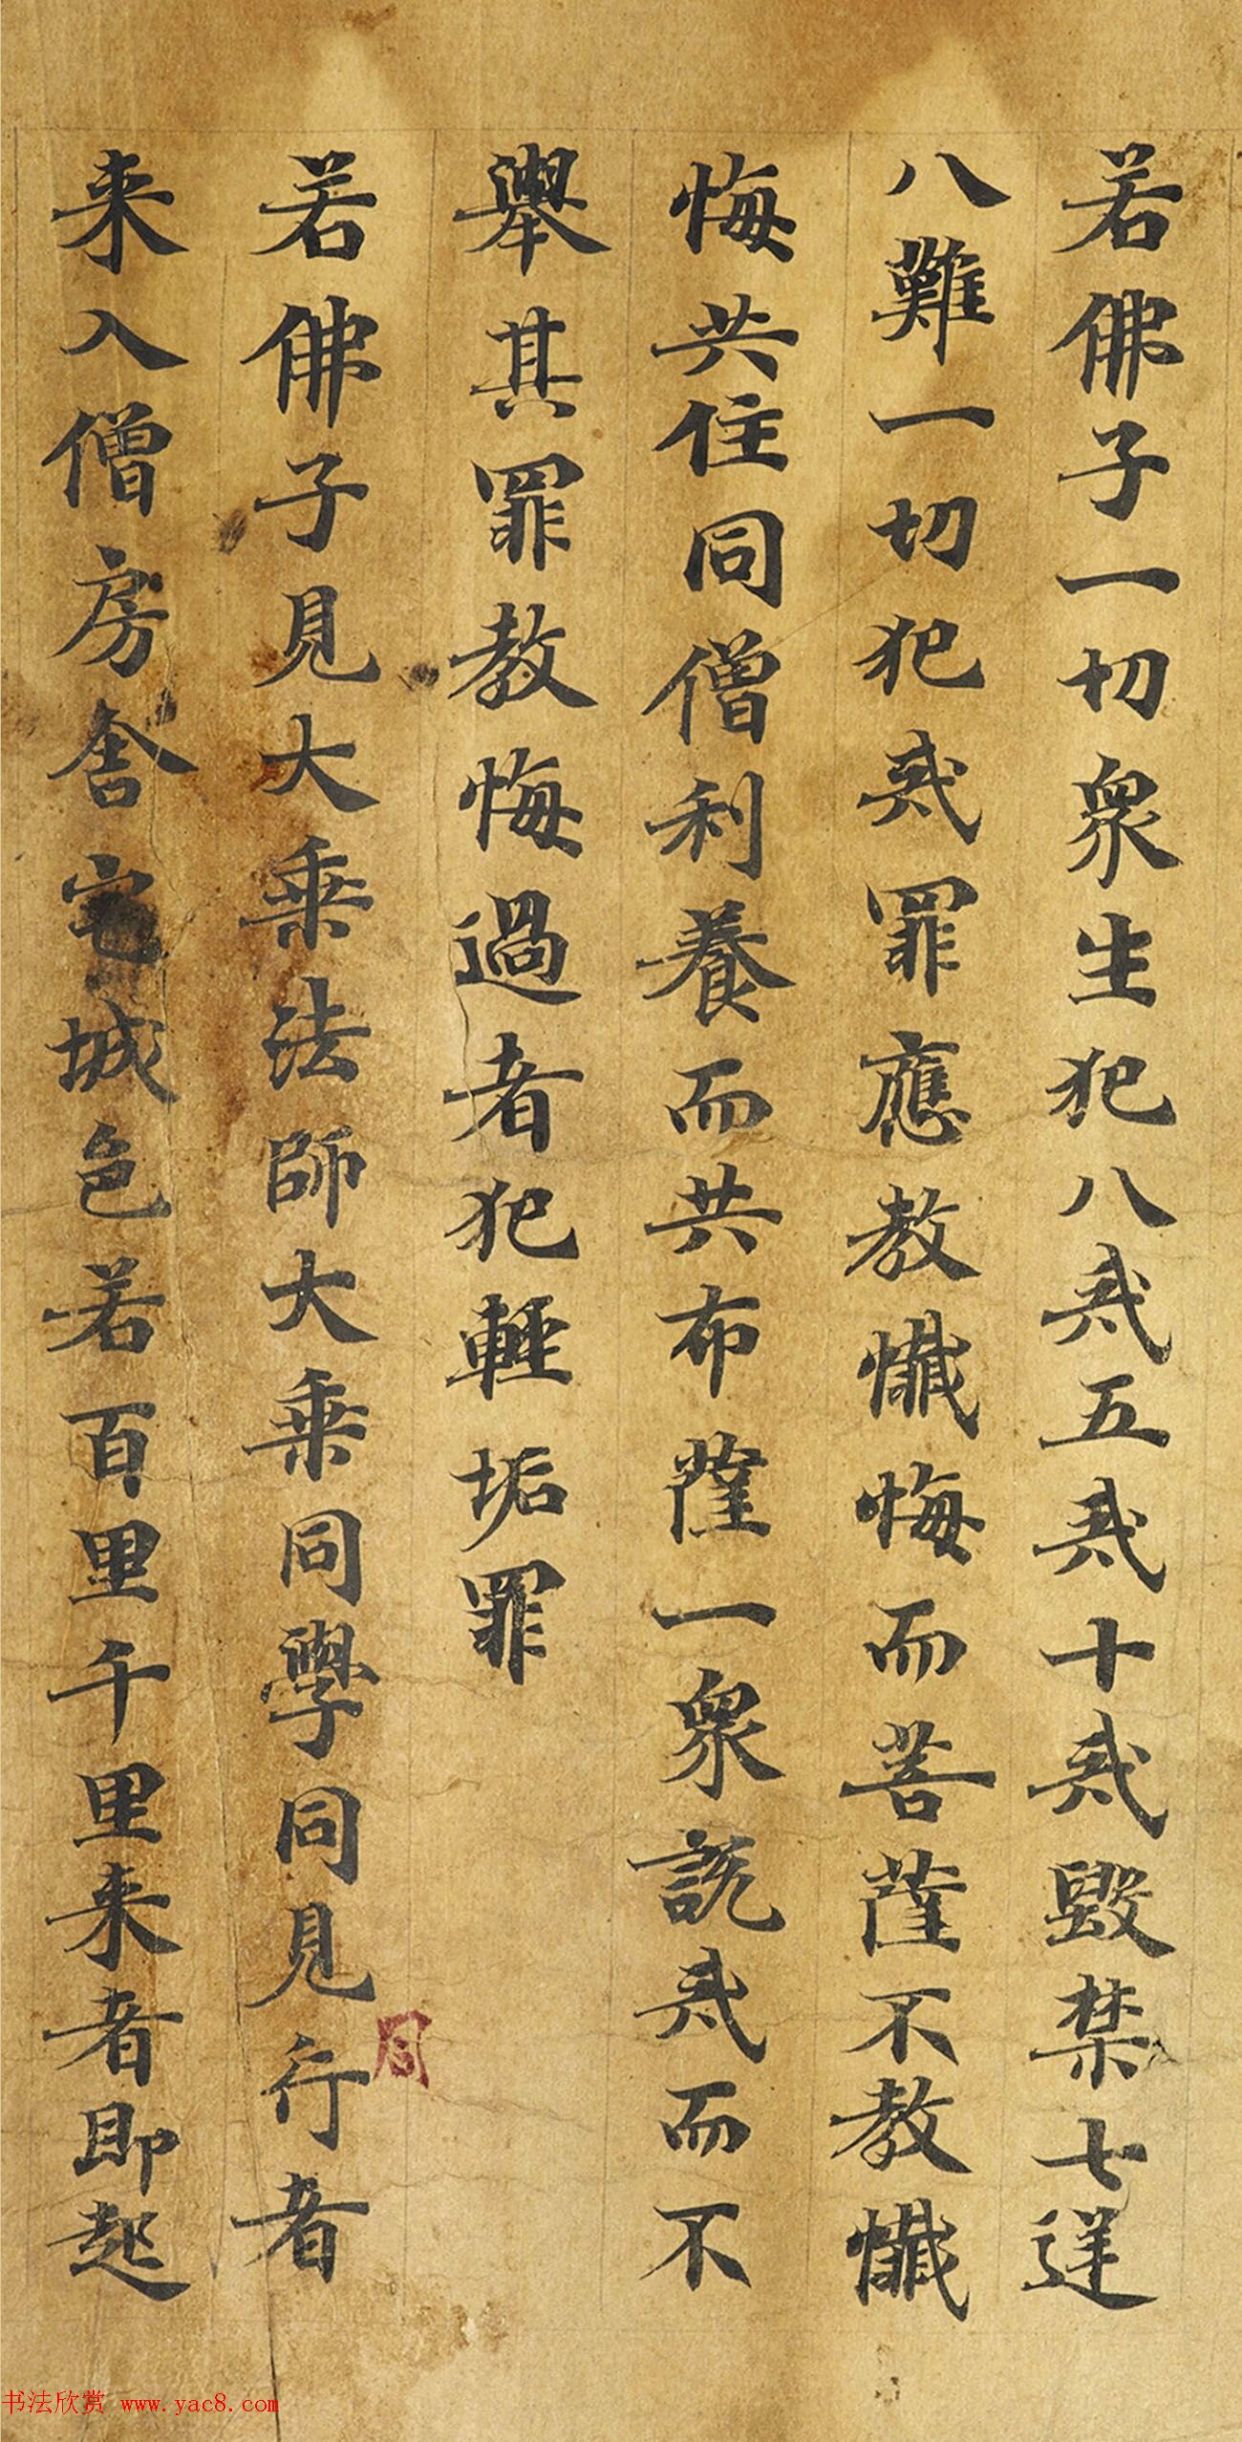 若佛子一切衆生犯八戒五戒十戒毀禁七逆
八難一切犯戒罪應教懺悔而菩薩不教懺
悔共住同僧利養而共布薩一衆說戒而不
舉其罪教悔過者犯輕垢罪
若佛子見大乘法師大乘同學同見行者
来入僧房舍宅城邑若百里千里来者即起
书法欣赏 www.yac8.com